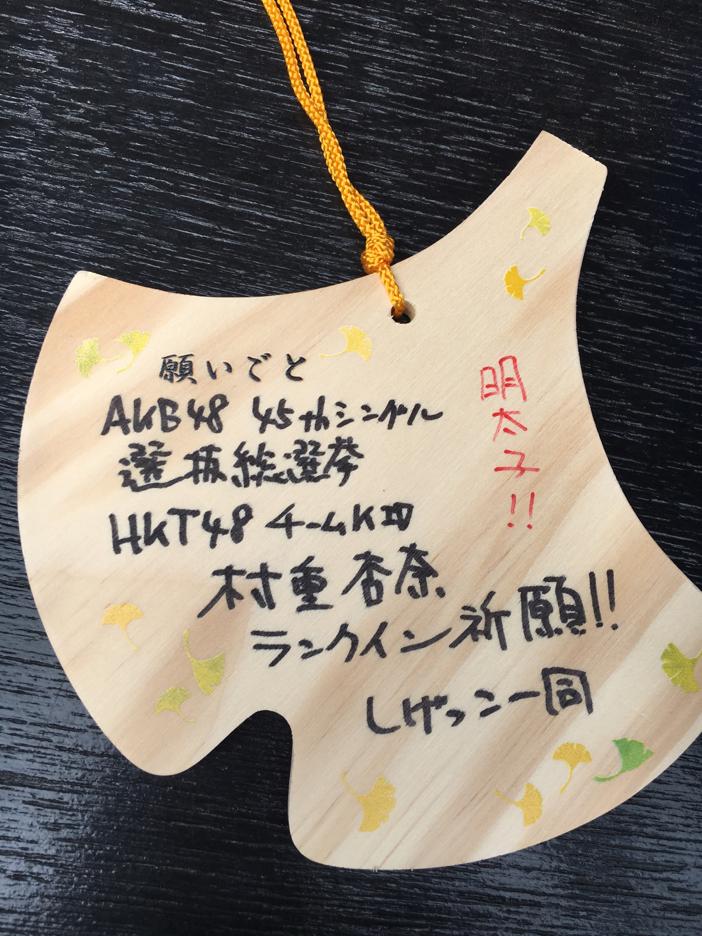 願いごと
AKB48 45thシングル
選抜総選挙
HKT48 チームKⅣ
村重杏奈
ランクイン祈願!!
しげっこ一同
明太子!!